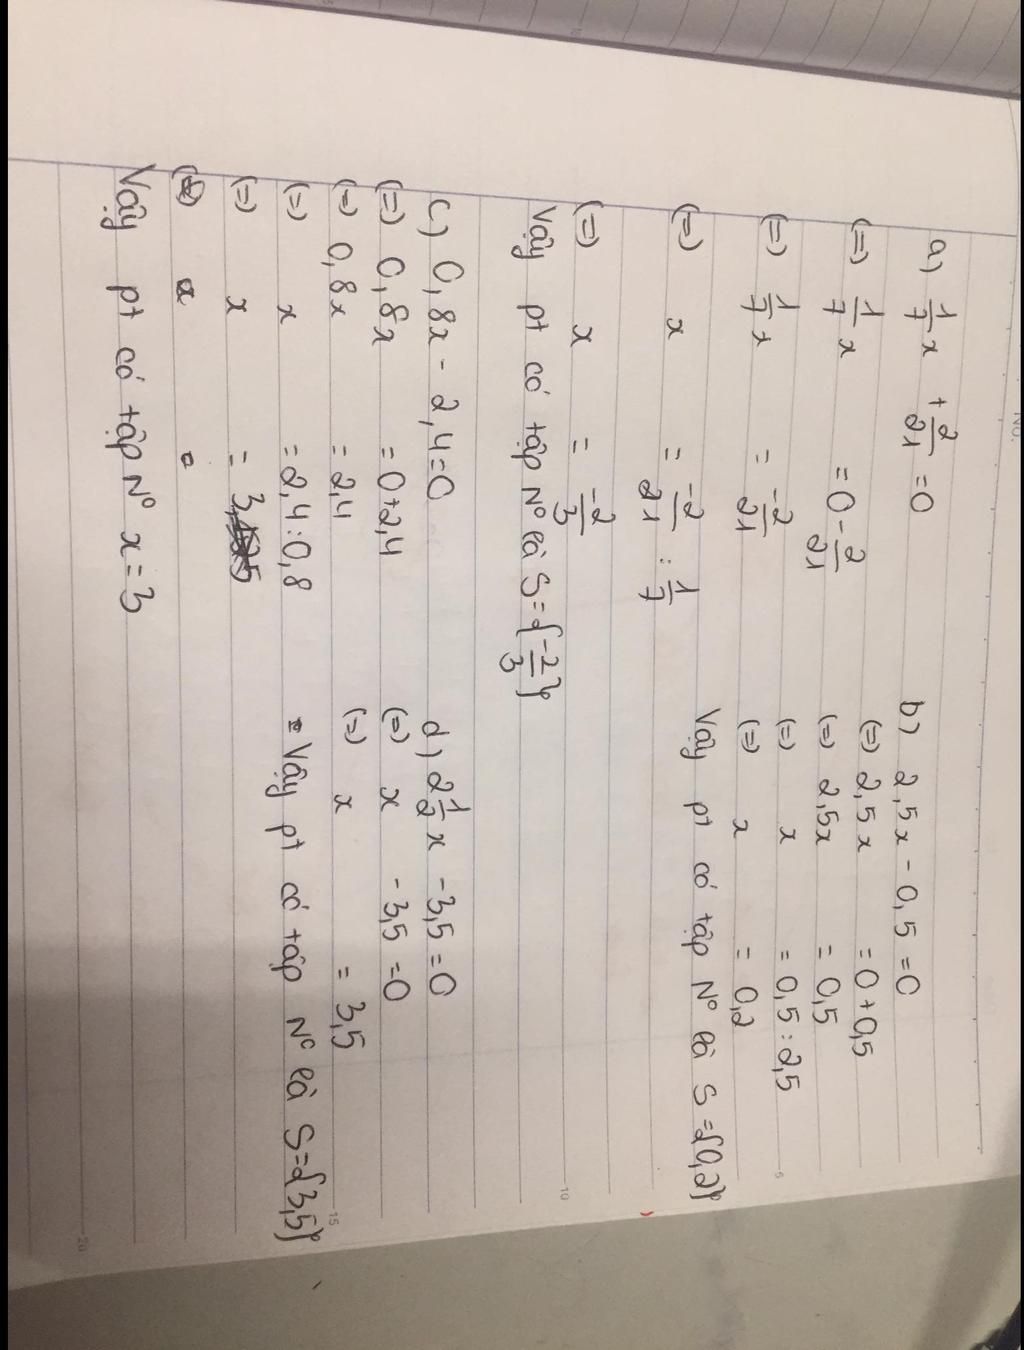 No.
a) 1/7 x + 2/21 = 0
(=) 1/7 x = 0 - 2/21
(=) 1/7 x = -2/21
(=) x = -2/21 : 1/7
(=) x = -2/3
Vậy pt có tập N° là S = {-2/3}
b) 2,5x - 0,5 = 0
(=) 2,5x = 0 + 0,5
(=) 2,5x = 0,5
(=) x = 0,5 : 2,5
(=) x = 0,2
Vậy pt có tập N° là S = {0,2}
c) 0,8x - 2,4 = 0
(=) 0,8x = 0 + 2,4
(=) 0,8x = 2,4
(=) x = 2,4 : 0,8
(=) x = 3
Vậy pt có tập N° x = 3
d) 2 1/2 x - 3,5 = 0
(=) x - 3,5 = 0
(=) x = 3,5
Vậy pt có tập N° là S = {3,5}
5
10
15
20